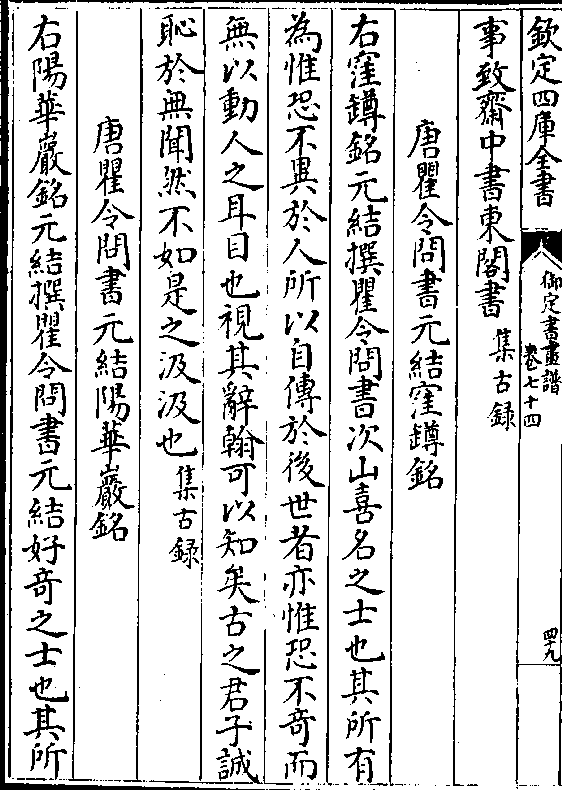 欽定四庫全書
御定書畫譜
卷七十四
四十九
事致齋中書東閣書 集古録
唐瞿令問書元結窪罇銘
右窪罇銘元結撰瞿令問書次山喜名之士也其所有
為惟恐不異於人所以自傳於後世者亦惟恐不竒而
無以動人之耳目也視其辭翰可以知矣古之君子誠
恥於無聞然不如是之汲汲也 集古録
唐瞿令問書元結陽華巖銘
右陽華巖銘元結撰瞿令問書元結好竒之士也其所